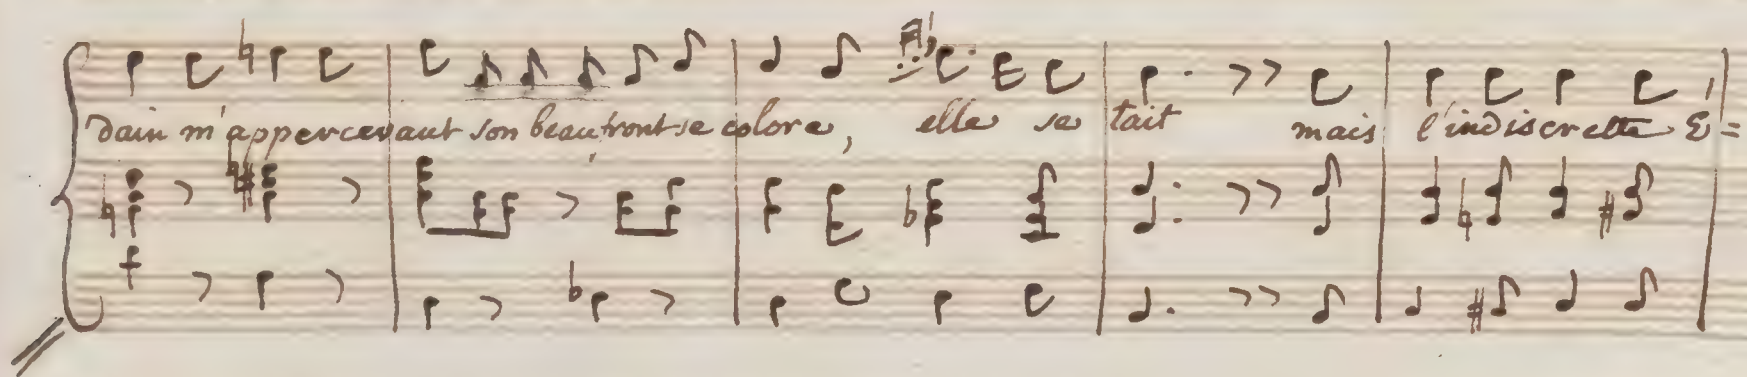 dain m'appercevant son beau front se colore, elle se tait mais l'indiscrette E=